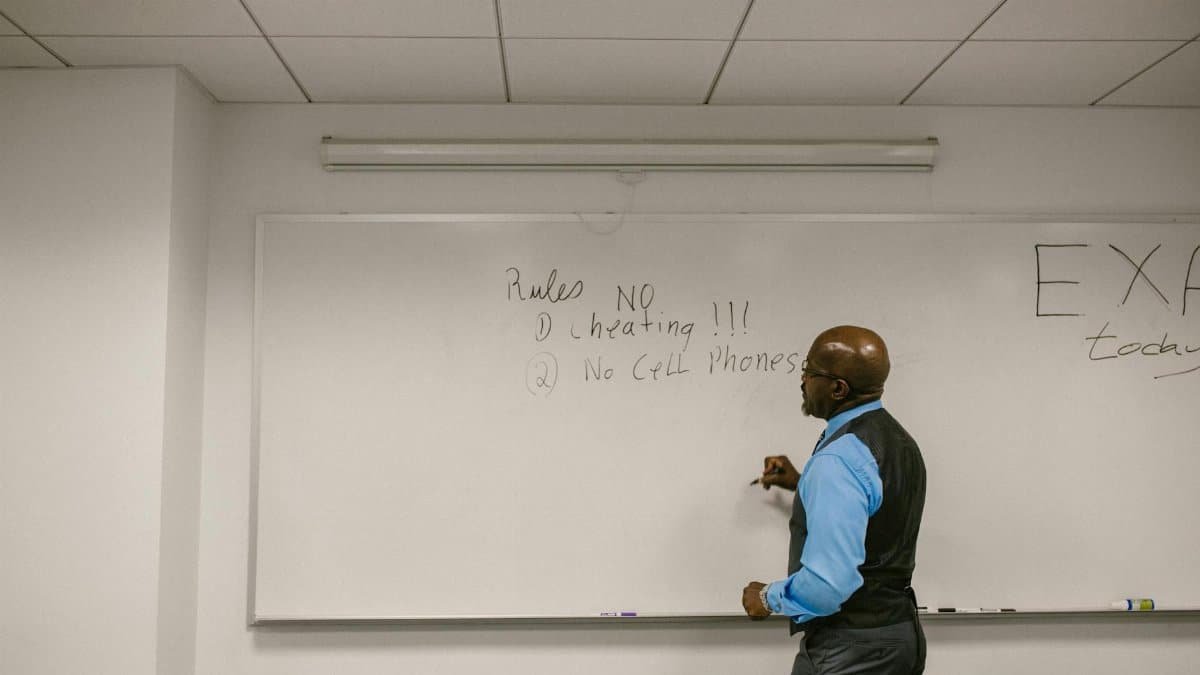 Rules
NO
① cheating !!!
② No Cell Phones
EXA
today